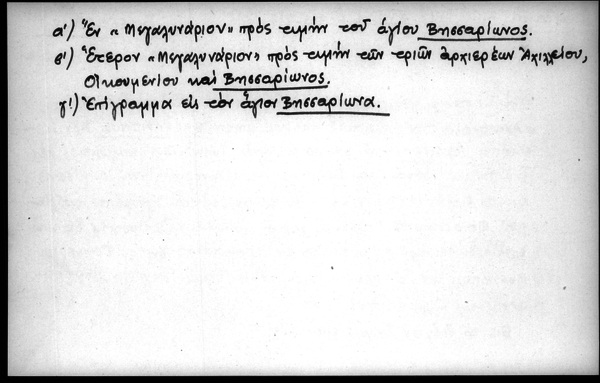 α') Ἓν «Μεγαλυνάριον» πρὸς τιμὴν τοῦ ἁγίου Βησσαρίωνος.
β') Ἕτερον «Μεγαλυνάριον» πρὸς τιμὴν τῶν τριῶν ἀρχιερέων Ἀχιλλείου,
Οἰκουμενίου καὶ Βησσαρίωνος.
γ') Ἐπίγραμμα εἰς τὸν ἅγιον Βησσαρίωνα.